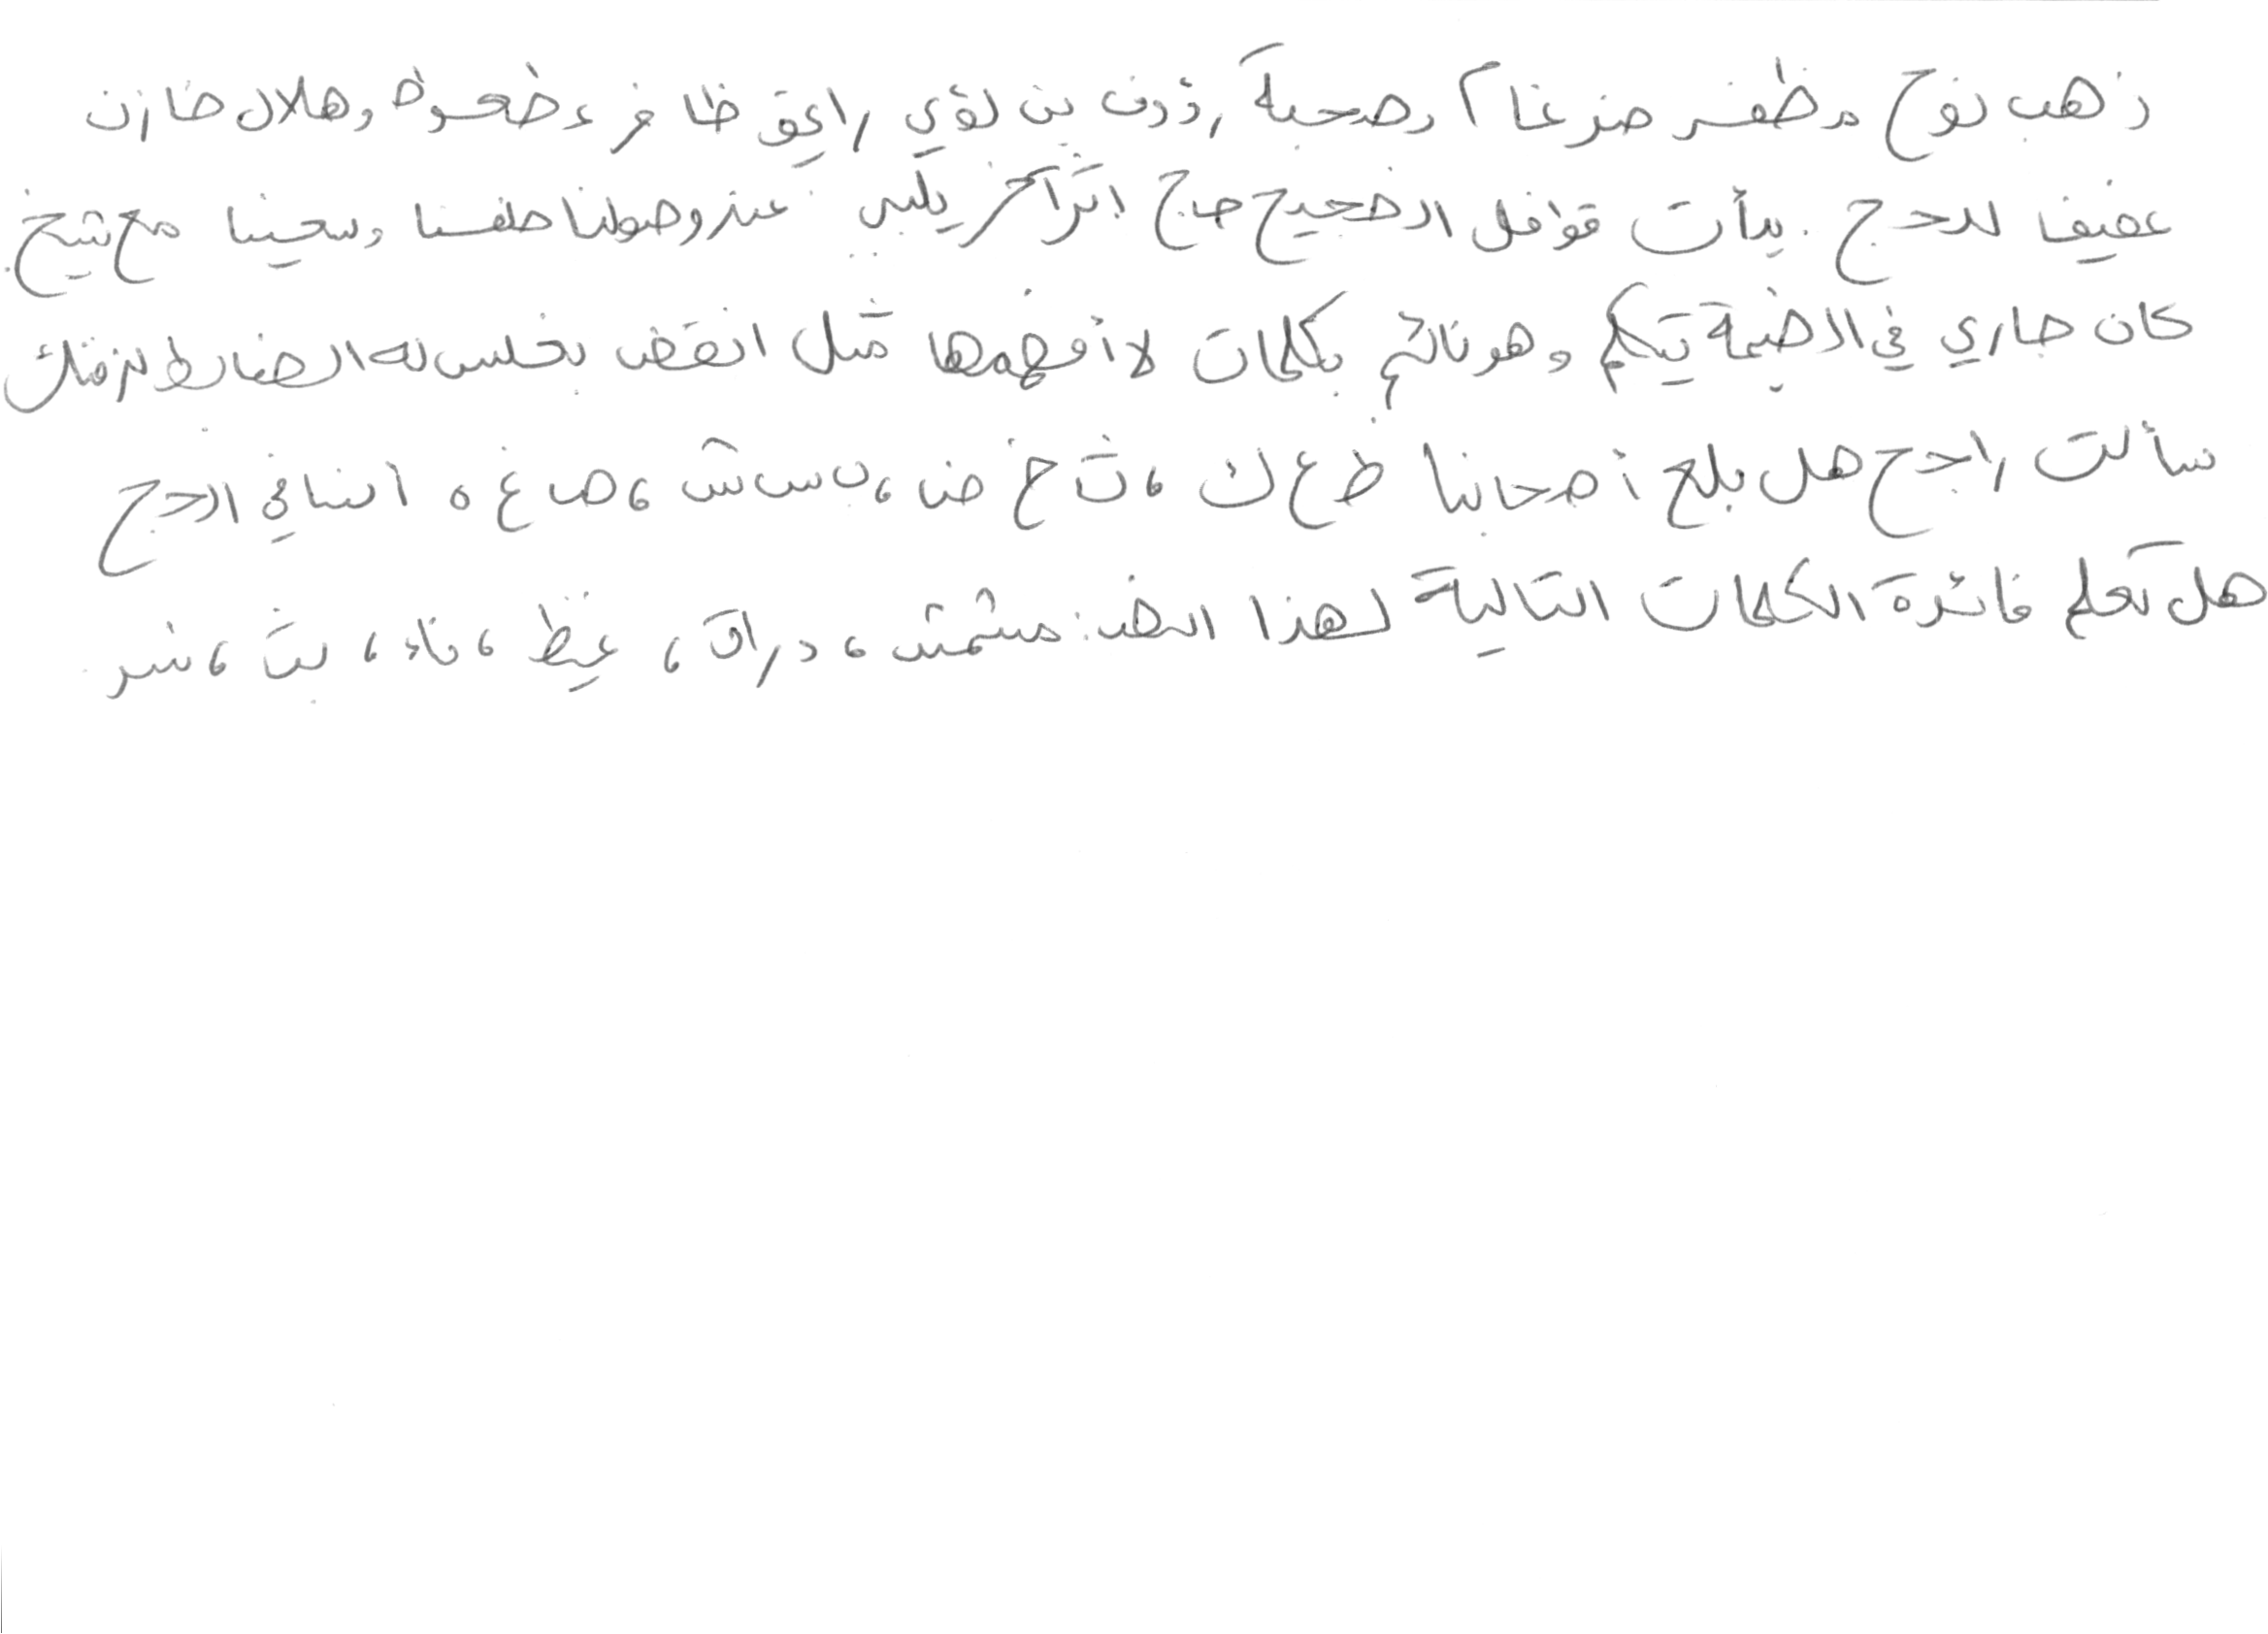 ذهب نوح مظفر ضرغام بصحبة رؤوف بن لؤي رايق ظافر عضعوظ وهلال خازن
عفيفا للحج . بدأت قوافل الضجيج حاج إثر آخر يلبس عند وصولنا طفنا وسعينا مع شيخ
كان جاري في الخيمة يتكلم وهو نائم بكلمات لا أفهمها مثل انقض بخلس له الضابط
سألت راجح هل بلع أصحابنا ظ ع ك ، ث خ ض ، ب س ش ، ص غ ه أثنا في الحج
هل تعلم فائدة الكلمات التالية لهذا البطب : مشمش ، دراق ، غيظ ، فاء ، بت ، شر